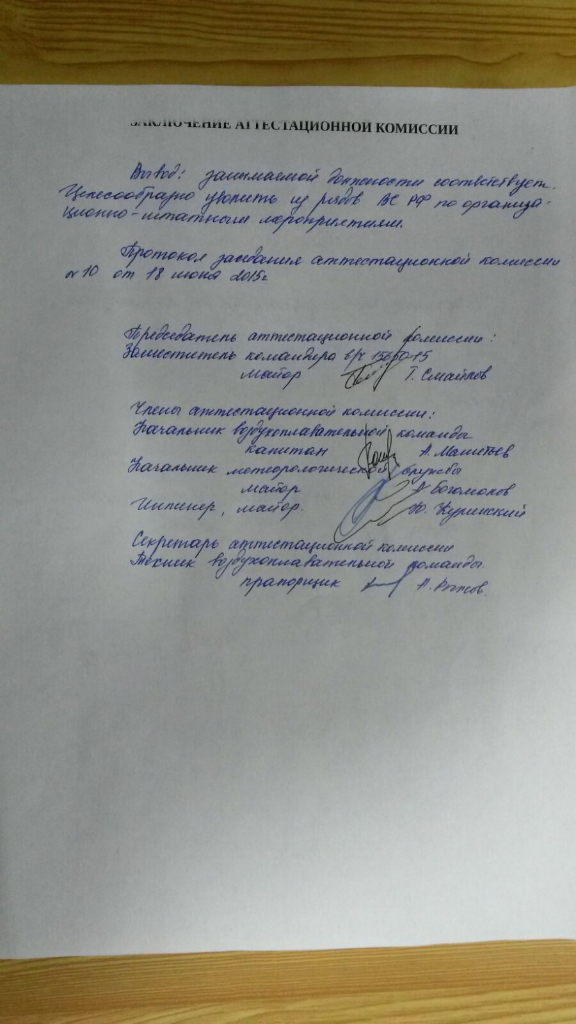 ЗАКЛЮЧЕНИЕ АТТЕСТАЦИОННОЙ КОМИССИИ
Вывод: занимаемой должности соответствует.
Целесообразно уволить из рядов ВС РФ по организа-
ционно-штатным мероприятиям.
Протокол заседания аттестационной комиссии
№10 от 18 июня 2015г
Председатель аттестационной комиссии:
Заместитель командира в/ч 15650-15
майор Т. Смайлов
Члены аттестационной комиссии:
Начальник воздухоплавательной команды
капитан А.
Начальник метеорологической службы
майор А Богомолов
Инженер, майор. Ю.
Секретарь аттестационной комиссии
Техник воздухоплавательной команды.
прапорщик А.